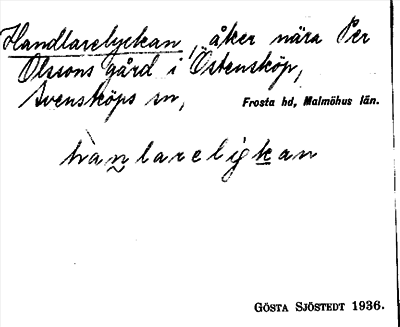 Handlarelyckan, åker nära Per
Olssons gård i Östensköp,
Svensköps sn, Frosta hd, Malmöhus län.
han̰lareligkan
GÖSTA SJÖSTEDT 1936.